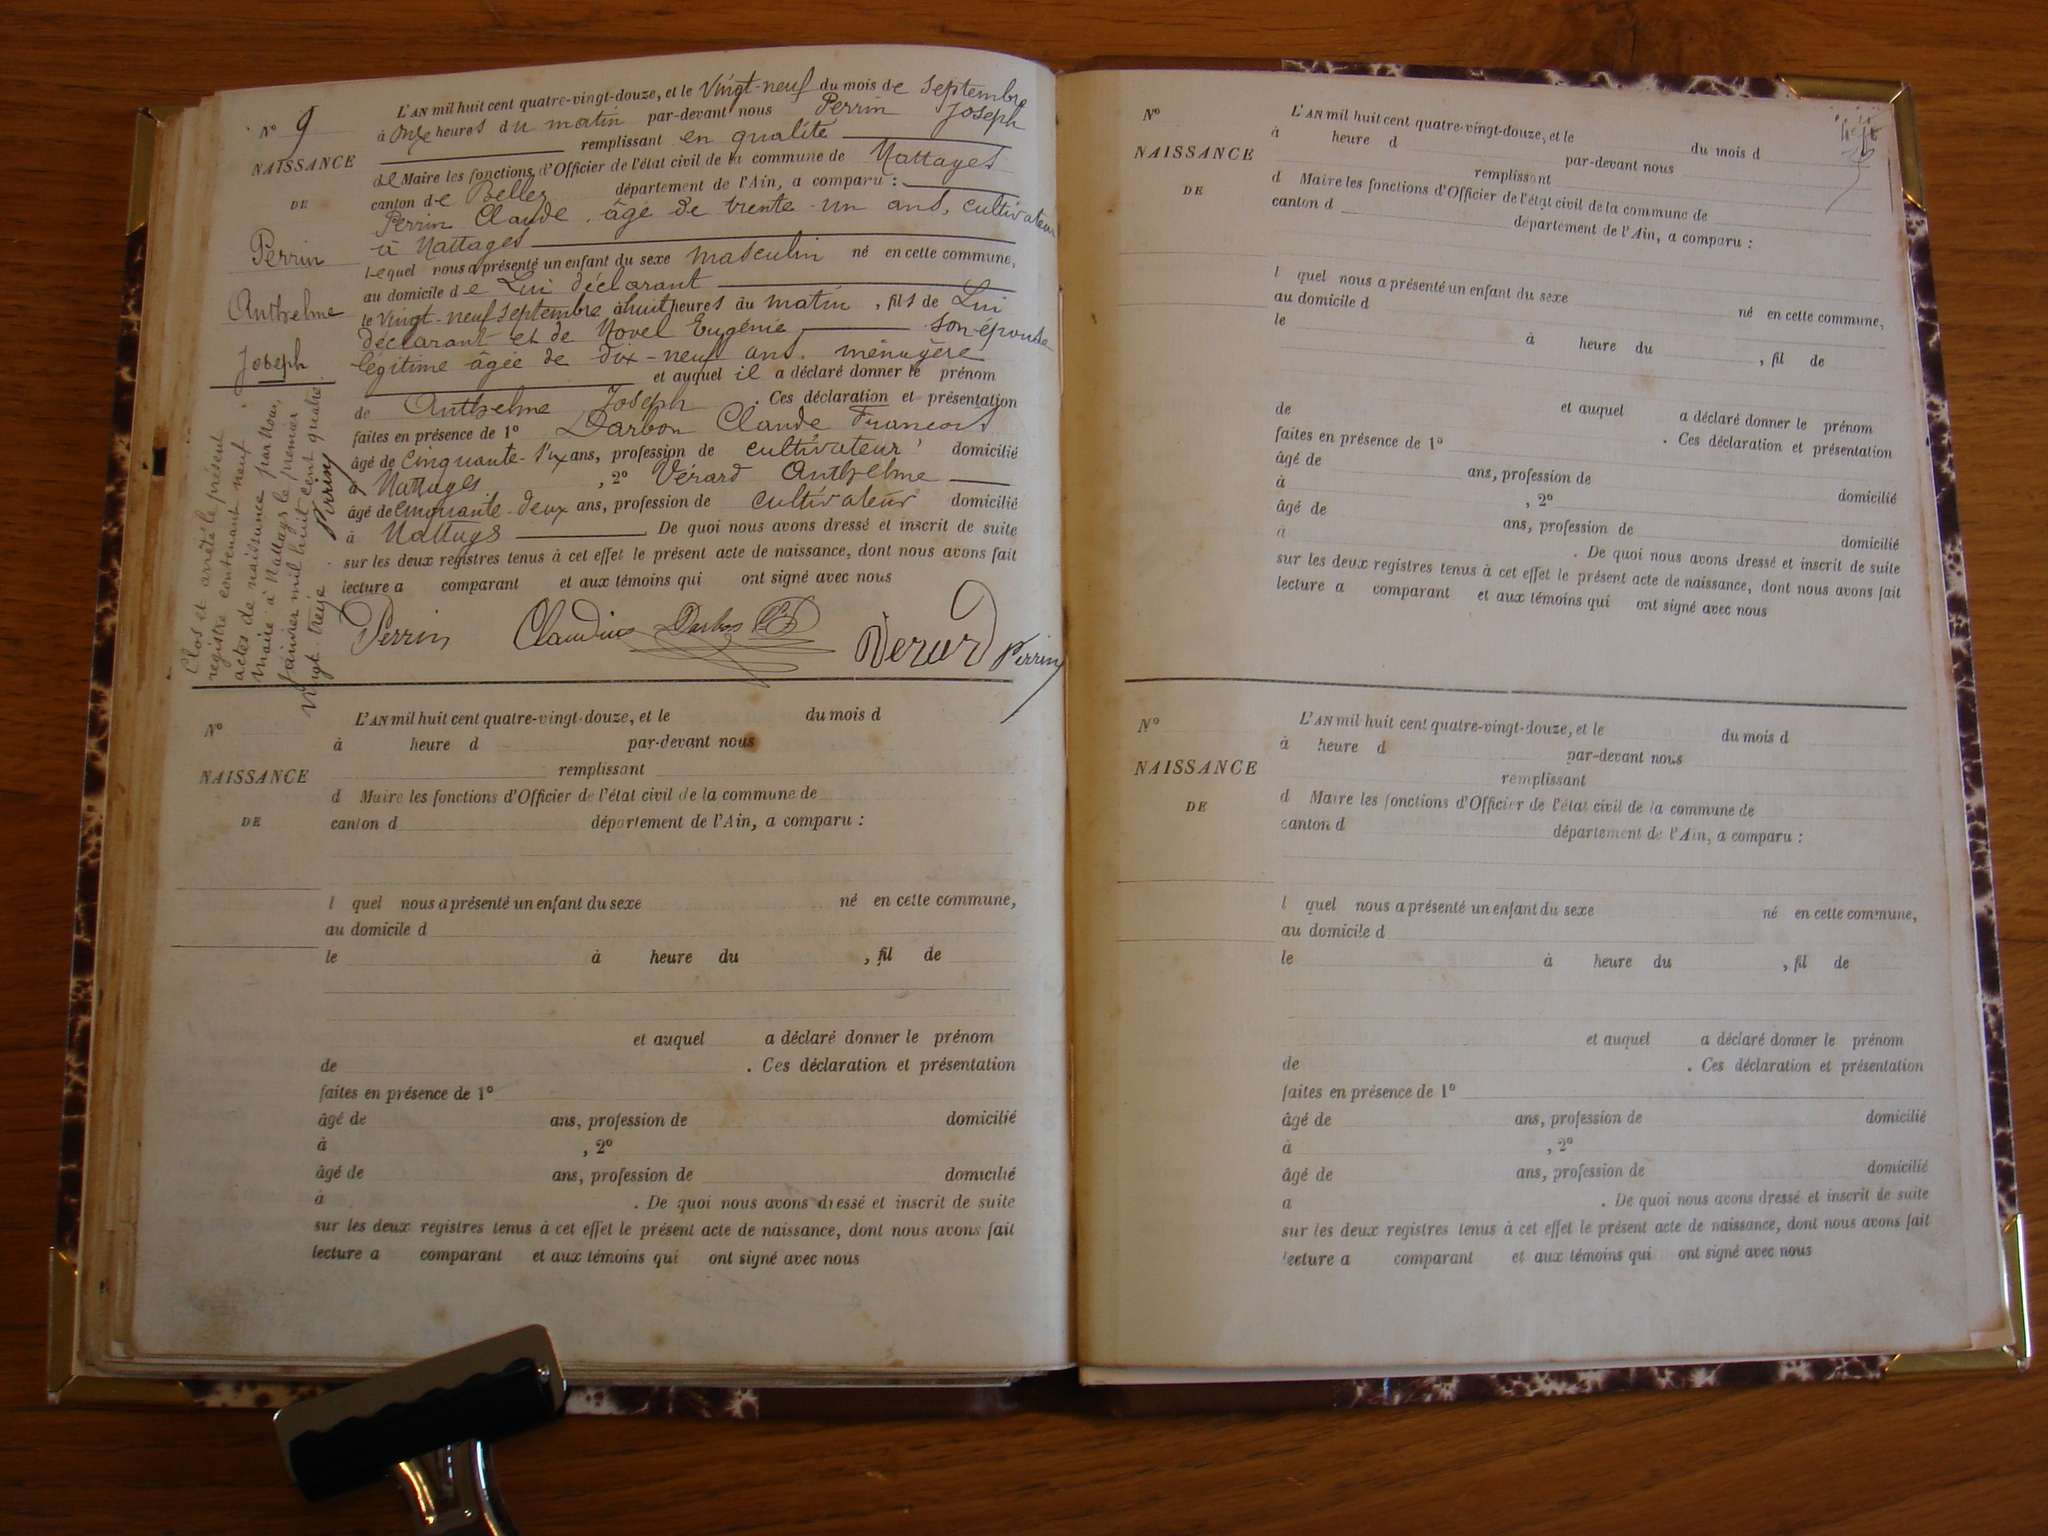 L'AN mil huit cent quatre-vingt-douze, et le Vingt-neuf du mois de Septembre
à onze heures du matin par-devant nous Perrin Joseph
remplissant en qualité
de Maire les fonctions d'Officier de l'état civil de la commune de Nattages
canton de Belley département de l'Ain, a comparu :
Perrin Claude, âgé de trente-un ans, cultivateur
à Nattages
lequel nous a présenté un enfant du sexe masculin né en cette commune,
au domicile de Lui déclarant
le Vingt-neuf septembre à huit heures du matin, fils de Lui
déclarant et de Novel Eugénie son épouse
légitime âgée de dix-neuf ans. ménagère
et auquel il a déclaré donner le prénom
de Anthelme Joseph. Ces déclaration et présentation
faites en présence de 1° Darbon Claude Francois
âgé de Cinquante-six ans, profession de cultivateur domicilié
à Nattages, 2° Vérard Anthelme
âgé de Cinquante-deux ans, profession de cultivateur domicilié
à Nattags De quoi nous avons dressé et inscrit de suite
sur les deux registres tenus à cet effet le présent acte de naissance, dont nous avons fait
lecture a comparant et aux témoins qui ont signé avec nous
Perrin Claudius Darbon Verard Perrin
N° 9
NAISSANCE
DE
Perrin
Anthelme
Joseph
Clos et arrêté le présent
registre contenant neuf
actes de naissance par Nous,
Maire à Nattags le premier
janvier mil huit cent quatre
vingt-treize Perrin
N°
NAISSANCE
DE
L'AN mil huit cent quatre-vingt-douze, et le du mois d
à heure d par-devant nous
remplissant
d Maire les fonctions d'Officier de l'état civil de la commune de
canton d département de l'Ain, a comparu :
l quel nous a présenté un enfant du sexe né en cette commune,
au domicile d
le à heure du , fil de
et auquel a déclaré donner le prénom
de . Ces déclaration et présentation
faites en présence de 1°
âgé de ans, profession de domicilié
à , 2°
âgé de ans, profession de domicilié
à . De quoi nous avons dressé et inscrit de suite
sur les deux registres tenus à cet effet le présent acte de naissance, dont nous avons fait
lecture a comparant et aux témoins qui ont signé avec nous
N°
NAISSANCE
DE
L'AN mil huit cent quatre-vingt-douze, et le du mois d
à heure d par-devant nous
remplissant
d Maire les fonctions d'Officier de l'état civil de la commune de
canton d département de l'Ain, a comparu :
l quel nous a présenté un enfant du sexe né en cette commune,
au domicile d
le à heure du , fil de
et auquel a déclaré donner le prénom
de . Ces déclaration et présentation
faites en présence de 1°
âgé de ans, profession de domicilié
à , 2°
âgé de ans, profession de domicilié
à . De quoi nous avons dressé et inscrit de suite
sur les deux registres tenus à cet effet le présent acte de naissance, dont nous avons fait
lecture a comparant et aux témoins qui ont signé avec nous
N°
NAISSANCE
DE
L'AN mil huit cent quatre-vingt-douze, et le du mois d
à heure d par-devant nous
remplissant
d Maire les fonctions d'Officier de l'état civil de la commune de
canton d département de l'Ain, a comparu :
l quel nous a présenté un enfant du sexe né en cette commune,
au domicile d
le à heure du , fil de
et auquel a déclaré donner le prénom
de . Ces déclaration et présentation
faites en présence de 1°
âgé de ans, profession de domicilié
à , 2°
âgé de ans, profession de domicilié
a . De quoi nous avons dressé et inscrit de suite
sur les deux registres tenus à cet effet le présent acte de naissance, dont nous avons fait
lecture a comparant et aux témoins qui ont signé avec nous